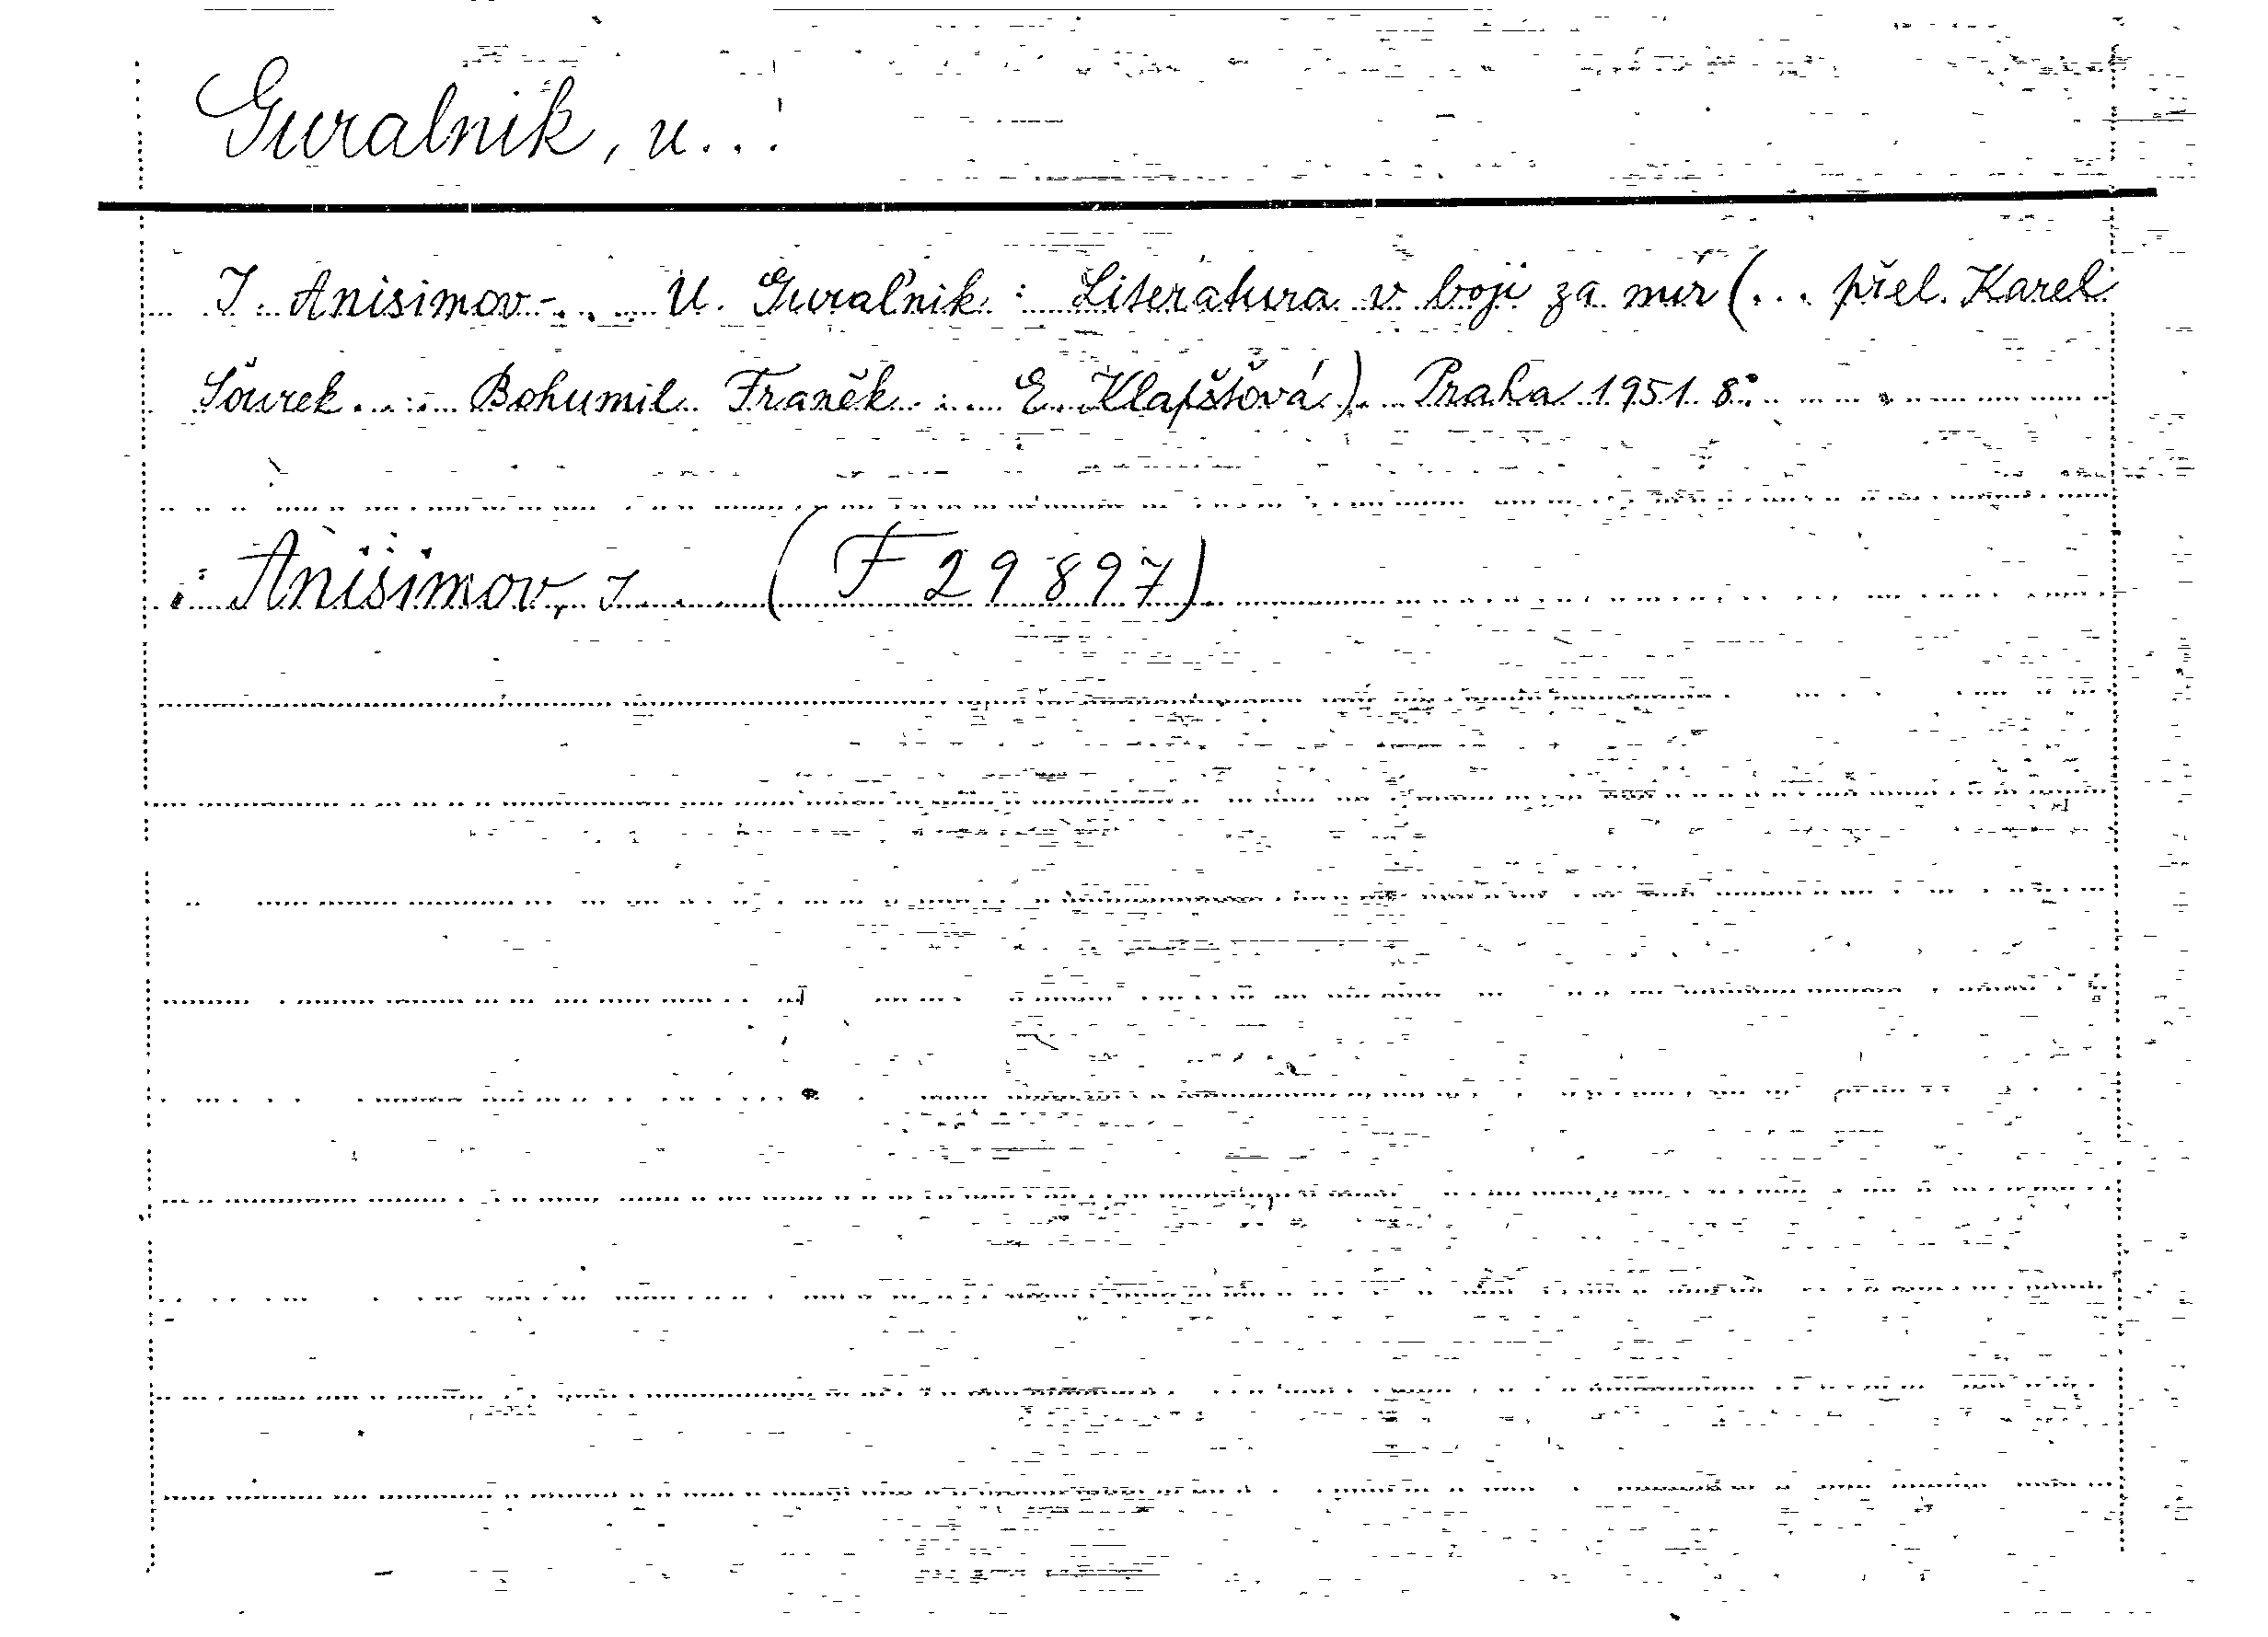 Guralnik, U...
I. Anisimov - . . U. Guralnik : Literatura v boji za mír (... přel. Karel
Šourek... Bohumil Franěk ... E. Klapštová). Praha 1951. 8°.
: Anisimov, I. (F 29897)